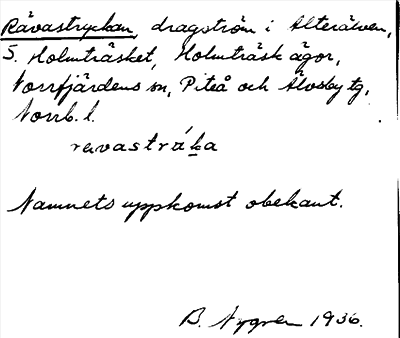 Rävastryckan, dragström i Alterälven,
S. Holmträsket, Holmträsk ägor,
Norrfjärdens sn, Piteå och Älvsby tg,
Norrb. l.
ravastráka
Namnets uppkomst obekant.
B. Nygren 1936.